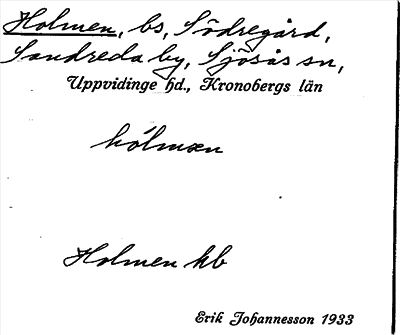 Holmen, bs, Södregård,
Sandreda by, Sjösås sn,
Uppvidinge hd., Kronobergs län
hólmæn
Holmen kb
Erik Johannesson 1933